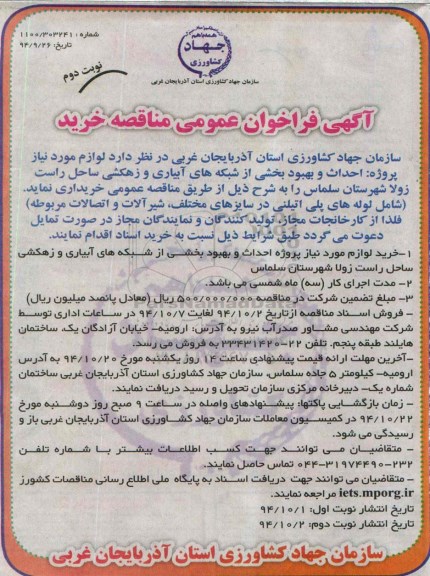 شماره : ۱۱۰۰/۳۰۳۲۴۱
تاریخ: ۹۴/۹/۲۶
نوبت دوم
همه با هم
جهاد
کشاورزی
سازمان جهاد کشاورزی استان آذربایجان غربی
آگهی فراخوان عمومی مناقصه خرید
سازمان جهاد کشاورزی استان آذربایجان غربی در نظر دارد لوازم مورد نیاز
پروژه: احداث و بهبود بخشی از شبکه های آبیاری و زهکشی ساحل راست
زولا شهرستان سلماس را به شرح ذیل از طریق مناقصه عمومی خریداری نماید.
(شامل لوله های پلی اتیلنی در سایزهای مختلف، شیرآلات و اتصالات مربوطه)
فلذا از کارخانجات مجاز، تولید کنندگان و نمایندگان مجاز در صورت تمایل
دعوت می گردد طبق شرایط ذیل نسبت به خرید اسناد اقدام نمایند.
۱-خرید لوازم مورد نیاز پروژه احداث و بهبود بخشی از شبکه های آبیاری و زهکشی
ساحل راست زولا شهرستان سلماس
۲- مدت اجرای کار (سه) ماه شمسی می باشد.
۳- مبلغ تضمین شرکت در مناقصه ۵۰۰/۰۰۰/۰۰۰ ریال (معادل پانصد میلیون ریال)
- فروش اسناد مناقصه ازتاریخ ۹۴/۱۰/۲ لغایت ۹۴/۱۰/۷ در ساعات اداری توسط
شرکت مهندسی مشاور صدرآب نیرو به آدرس: ارومیه- خیابان آزادگان یک، ساختمان
هایلند طبقه پنجم. تلفن ۲۲-۳۳۴۳۱۴۲۰ به فروش می رسد.
-آخرین مهلت ارائه قیمت پیشنهادی ساعت ۱۴ روز یکشنبه مورخ ۹۴/۱۰/۲۰ به آدرس
ارومیه- کیلومتر ۵ جاده سلماس، سازمان جهاد کشاورزی استان آذربایجان غربی ساختمان
شماره یک- دبیرخانه مرکزی سازمان تحویل و رسید دریافت نمایند.
- زمان بازگشایی پاکتها: پیشنهادهای واصله در ساعت ۹ صبح روز دوشنبه مورخ
۹۴/۱۰/۲۲ در کمیسیون معاملات سازمان جهاد کشاورزی استان آذربایجان غربی باز و
رسیدگی می شود.
- متقاضیان می توانند جهت کسب اطلاعات بیشتر با شماره تلفن
۰۴۴-۳۱۹۷۴۴۹۰-۲۳۲ تماس حاصل نمایند.
- متقاضیان می توانند جهت دریافت اسناد به پایگاه ملی اطلاع رسانی مناقصات کشورز
iets.mporg.ir مراجعه نمایند.
تاریخ انتشار نوبت اول: ۹۴/۱۰/۱
تاریخ انتشار نوبت دوم: ۹۴/۱۰/۲
سازمان جهاد کشاورزی استان آذربایجان غربی